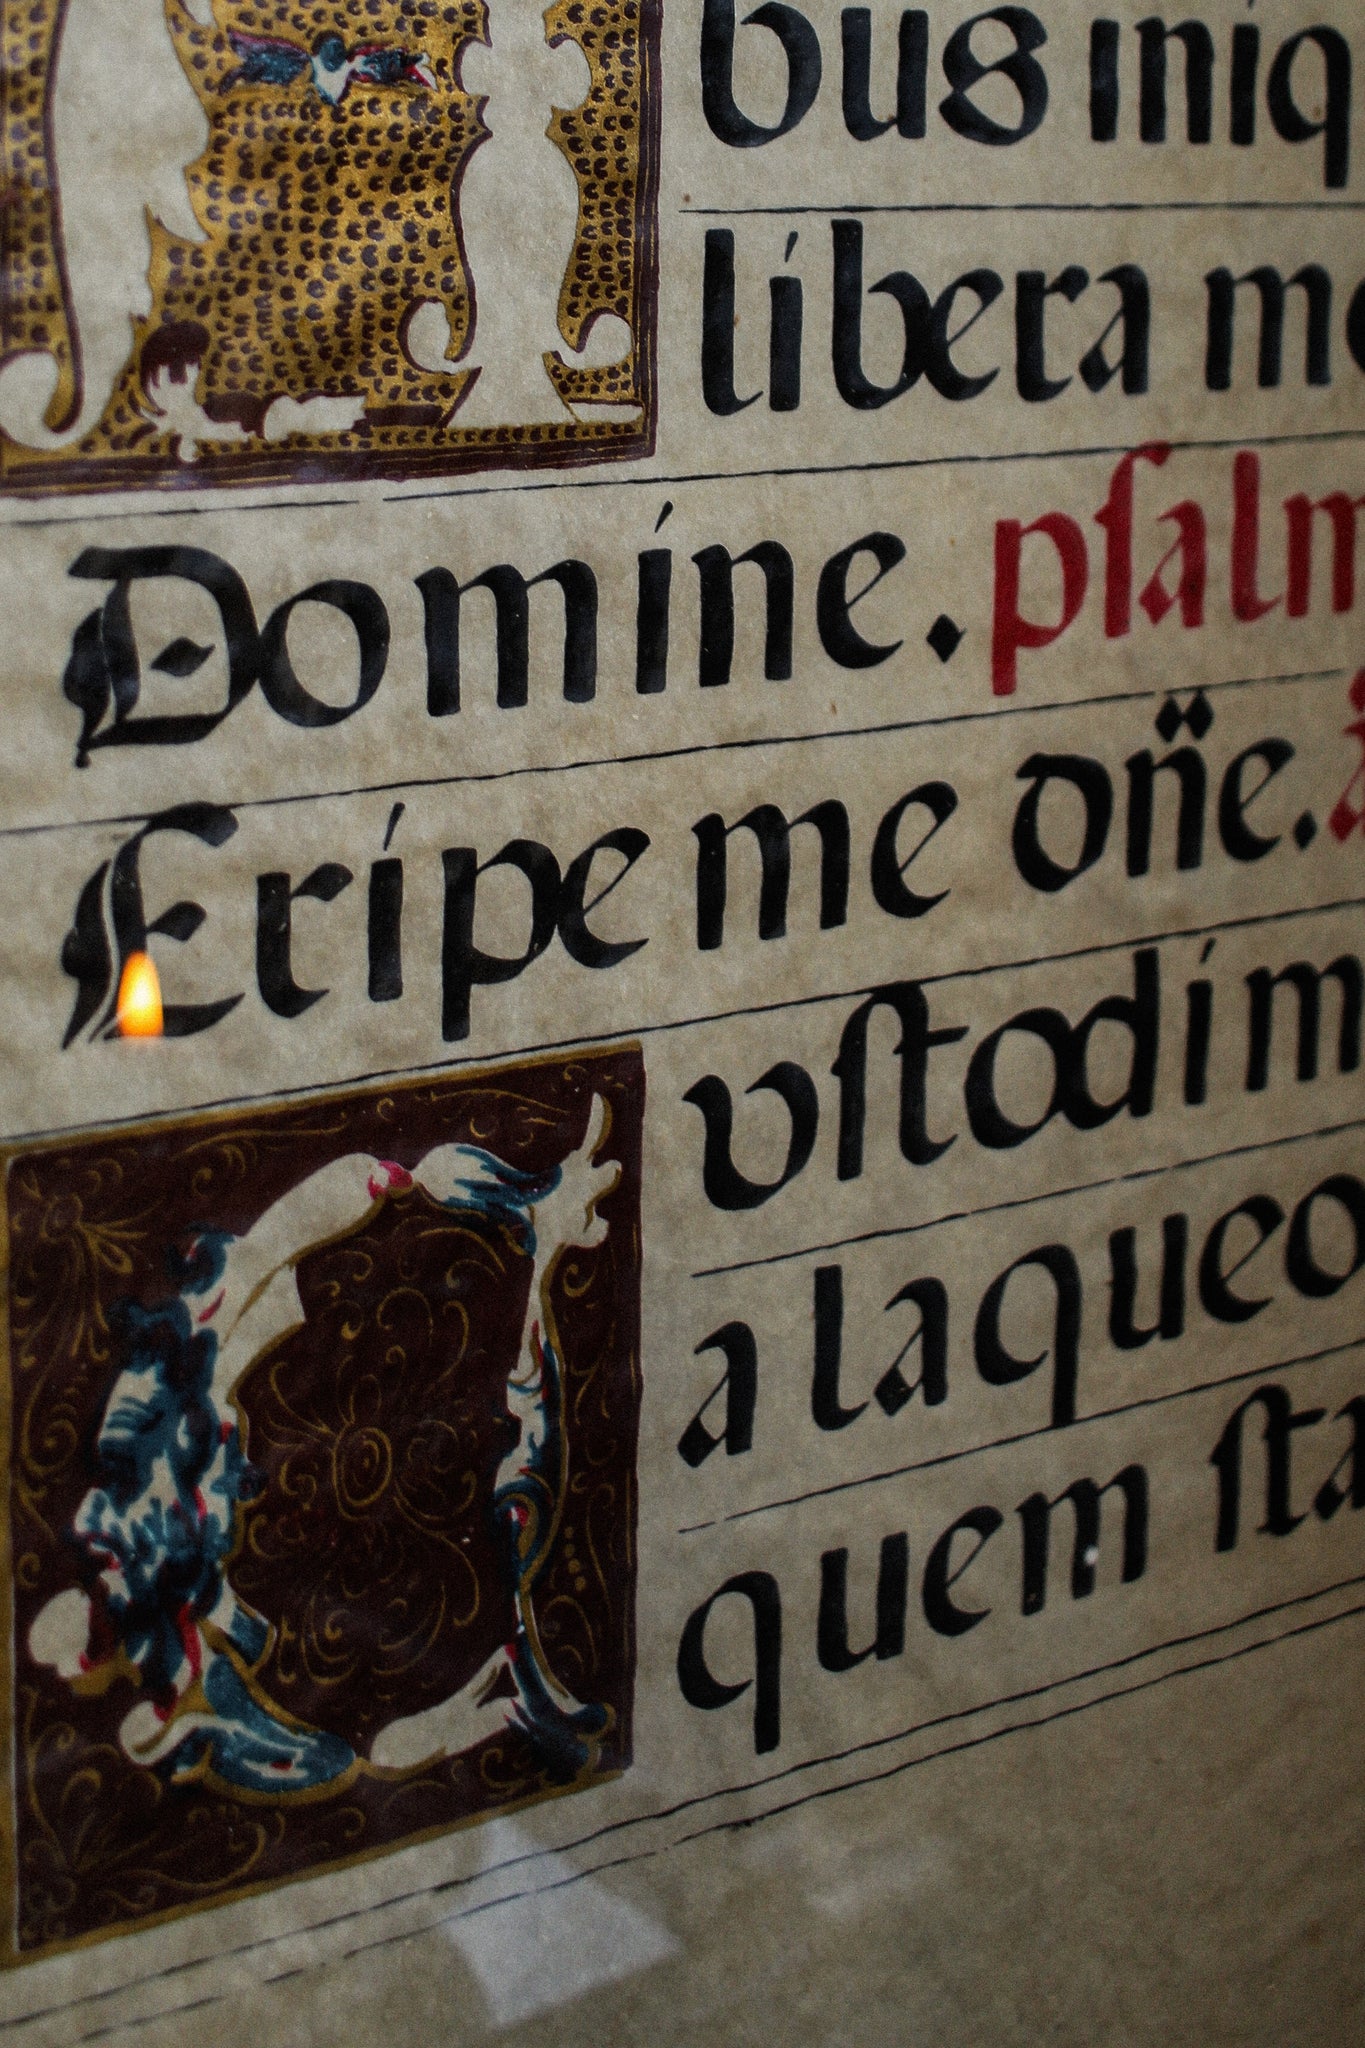 bus iniq
libera me
Domine. pſalm
Eripe me dn̈e.
vſtodi m
a laqueo
quem ſta